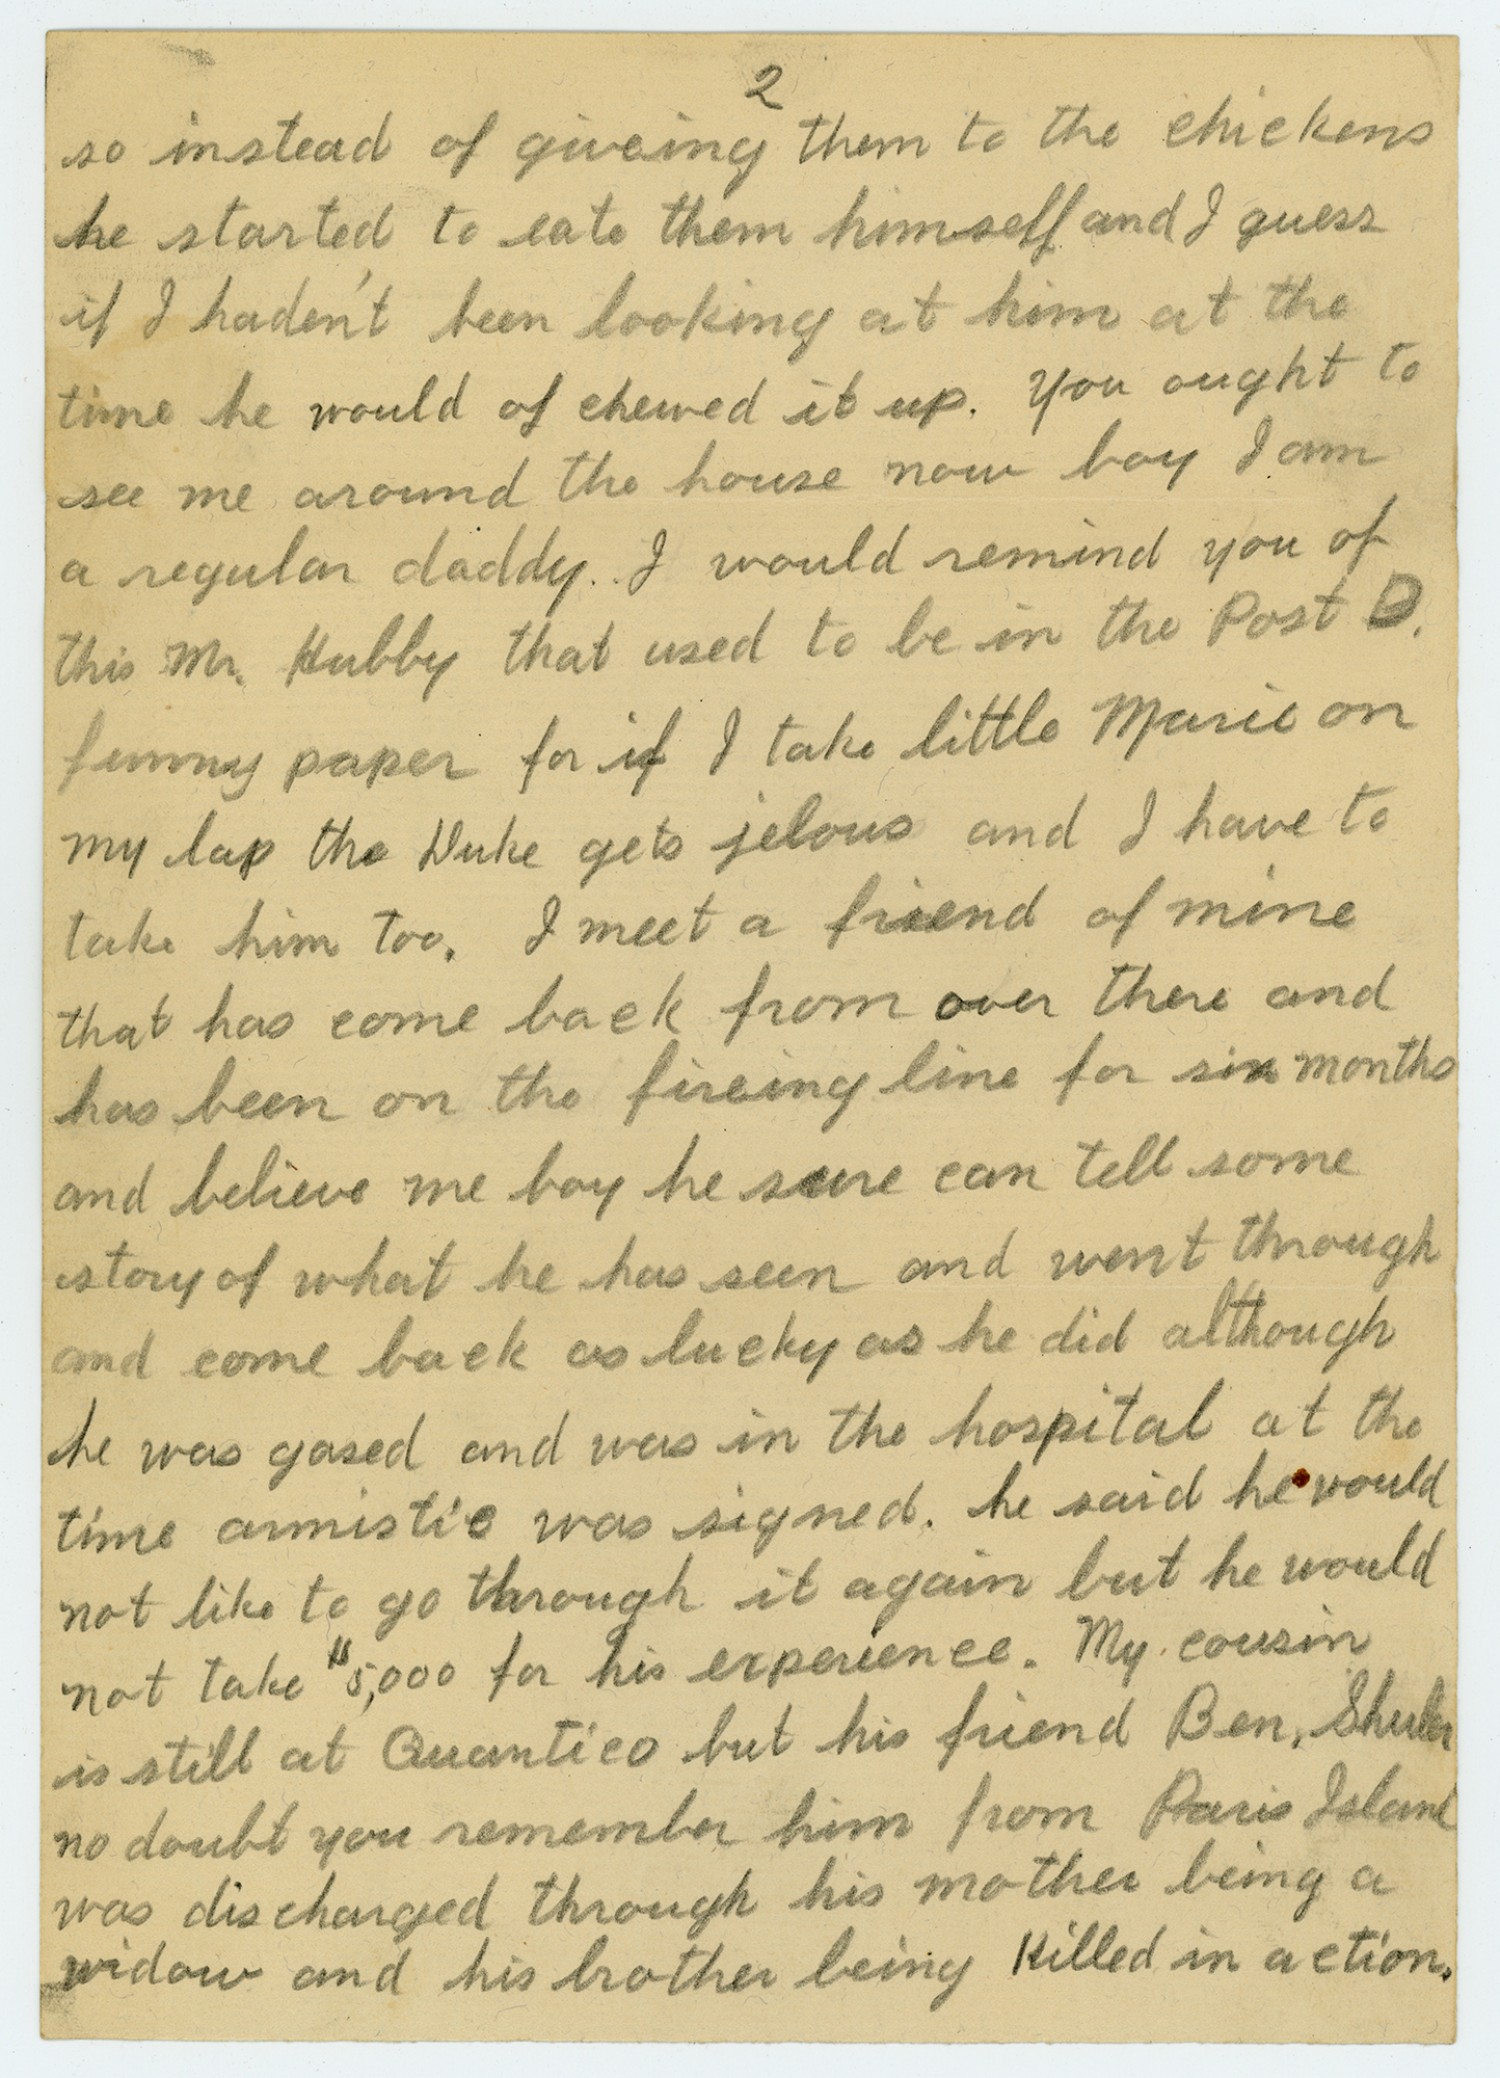 2
so instead of giveing them to the chickens
he started to eate them himself and I guess
if I haden't been looking at him at the
time he would of chewed it up. You ought to
see me around the house now boy I am
a regular daddy. I would remind you of
this Mr. Hubby that used to be in the Post D.
funny paper for if I take little Marie on
my lap the Duke gets jelous and I have to
take him too. I meet a friend of mine
that has come back from over there and
has been on the fireing line for six months
and believe me boy he sure can tell some
story of what he has seen and went through
and come back as lucky as he did although
he was gased and was in the hospital at the
time armistic was signed. he said he would
not like to go through it again but he would
not take $5,000 for his experience. My cousin
is still at Quantico but his friend Ben, Shuler
no doubt you remember him from Paris Island
was discharged through his mother being a
widow and his brother being killed in action.